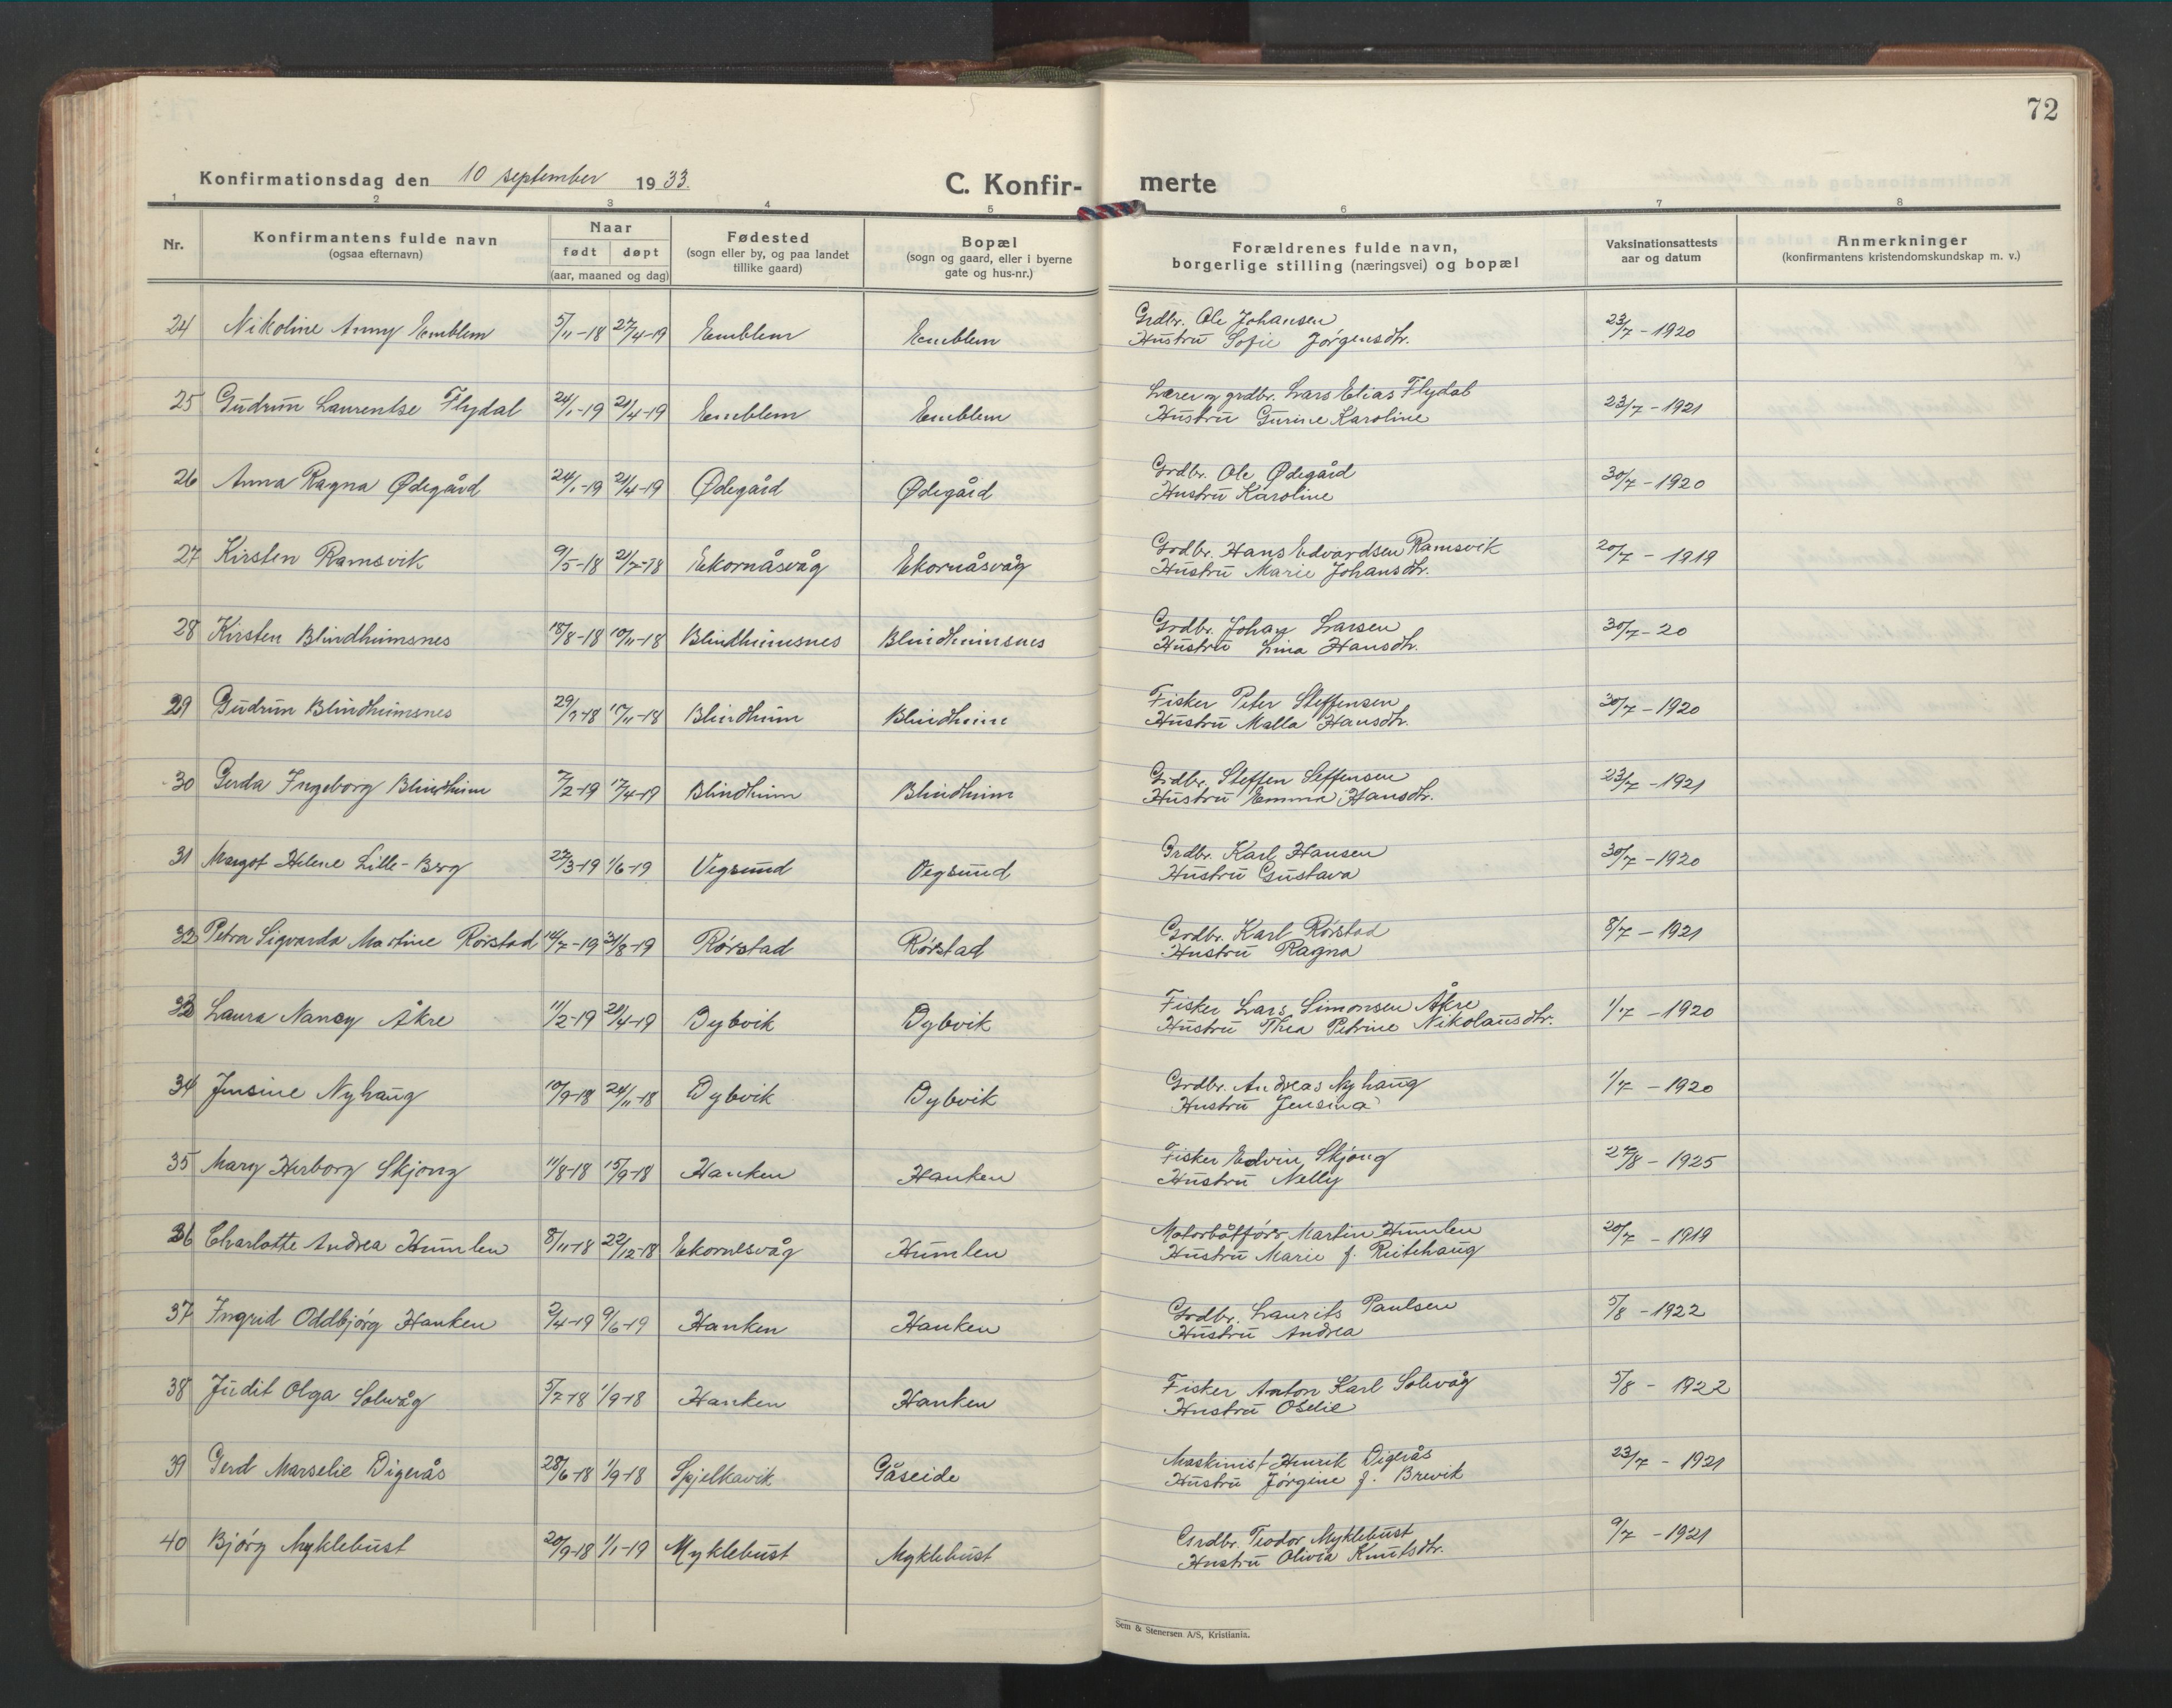 72
Konfirmationsdag den 10 september 1933.
C. Konfir- merte
1 2 3 4 5 6 7 8
Nr.
Konfirmantens fulde navn
(ogsaa efternavn)
Naar
født døpt
(aar, maaned og dag)
Fødested
(sogn eller by, og paa landet
tillike gaard)
Bopæl
(sogn og gaard, eller i byerne
gate og hus-nr.)
Forældrenes fulde navn,
borgerlige stilling (næringsvei) og bopæl
Vaksinationsattests
aar og datum
Anmerkninger
(konfirmantens kristendomskundskap m. v.)
24 Nikoline Anny Emblem 5/11-18 27/4-19 Emblem Emblem Grdbr. Ole Johansen 23/7-1920
Hustru Sofie Jørgensdtr.
25 Gudrun Laurentse Flydal 24/1-19 21/4-19 Emblem Emblem Lærer og grdbr. Lars Elias Flydal 23/7-1921
Hustru Gurine Karoline
26 Anna Ragna Ødegård 24/1-19 21/4-19 Ødegård Ødegård Grdbr. Ole Ødegård 30/7-1920
Hustru Karoline
27 Kirsten Ramsvik 9/5-18 21/7-18 Ekornåsvåg Ekornåsvåg Grdbr. Hans Edvardsen Ramsvik 20/7-1919
Hustru Marie Johansdtr.
28 Kirsten Blindheimsnes 18/8-18 10/11-18 Blindheimsnes Blindheimsnes Grdbr. Johan Larsen 30/7-20
Hustru Lina Hansdtr.
29 Gudrun Blindheimsnes 18 11-18 Blindheim Blindheim Fisker Peter Steffensen 30/7-1920
Hustru Malla Hansdtr.
30 Gerda Ingeborg Blindheim 7/2-19 17/4-19 Blindheim Blindheim Grdbr. Steffen Steffensen 23/7-1921
Hustru Emma Hansdtr.
31 Margot Helene Lille-Berg 27/3-19 1/6-19 Vegsund Vegsund Grdbr. Karl Hansen 30/7-1920
Hustru Gustava
32 Petra Sigvarda Martine Rørstad 14/7-19 31/8-19 Rørstad Rørstad Grdbr. Karl Rørstad 8/7-1921
Hustru Ragna
33 Laura Nancy Åkre 11/2-19 21/4-19 Dybvik Dybvik Fisker Lars Simonsen Åkre 1/7-1920
Hustru Thea Petrine Nikolausdtr.
34 Jensine Nyhaug 10/9-18 24/11-18 Dybvik Dybvik Grdbr. Andreas Nyhaug 1/7-1920
Hustru Jensina
35 Mary Herborg Skjong 11/8-18 15/9-18 Hanken Hanken Fisker Edvin Skjong 27/8-1925
Hustru Nelly
36 Charlotte Andrea Humlen 8/11-18 22/12-18 Ekornesvåg Humlen Motorbåtfører Martin Humlen 20/7-1919
Hustru Marie f. Reitehaug
37 Ingrid Oddbjørg Hanken 2/4-19 9/6-19 Hanken Hanken Grdbr. Laurits Paulsen 5/8-1922
Hustru Andrea
38 Judit Olga Solvåg 5/7-18 1/9-18 Hanken Hanken Fisker Anton Karl Solvåg 5/8-1922
Hustru Oselie
39 Gerd Marselie Digerås 28/6-18 1/9-18 Spjelkavik Gåseide Maskinist Henrik Digerås 23/7-1921
Hustru Jørgine f. Brevik
40 Bjørg Myklebust 20/9-18 1/1-19 Myklebust Myklebust Grdbr. Teodor Myklebust 9/7-1921
Hustru Olivia Knutsdtr.
Sem & Stenersen A/S, Kristiania.